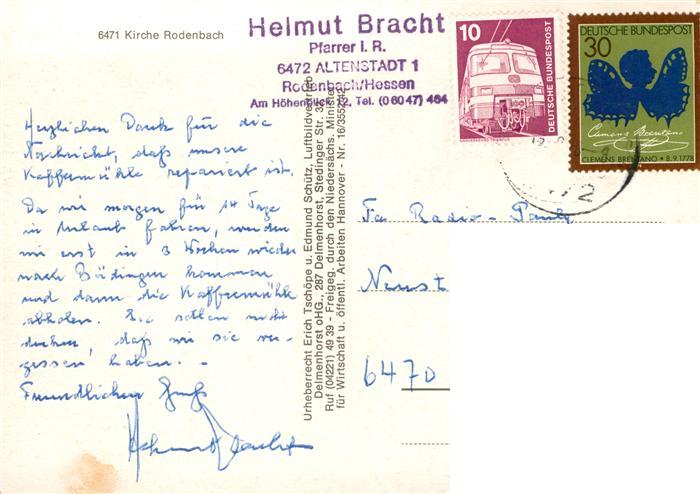 6471 Kirche Rodenbach
Helmut Bracht
Pfarrer i. R.
6472 ALTENSTADT 1
Rodenbach/Hessen
Am Höhenblick 12, Tel. (0 60 47) 464
10
DEUTSCHE BUNDESPOST
DEUTSCHE BUNDESPOST
30
Clemens Brentano
CLEMENS BRENTANO • 8.9.1778
Herzlichen Dank für die
Nachricht, daß unsere
Kaffeemühle repariert ist.
Da wir morgen für 14 Tage
in Urlaub fahren, werden
wir erst in 3 Wochen wieder
nach Büdingen kommen
und dann die Kaffeemühle
abholen. Sie sollen nicht
denken, daß wir sie ver-
gessen haben. -
Freundlichen Gruß
Helmut Bracht
Urheberrecht Erich Tschöpe u. Edmund Schütz, Luftbildvertrieb
Delmenhorst oHG., 287 Delmenhorst, Stedinger Str.
Ruf (04221) 49 39 - Freigeg. durch den Niedersächs. Minister
für Wirtschaft u. öffentl. Arbeiten Hannover - Nr. 16/3552/42
Fa Radio-
6470